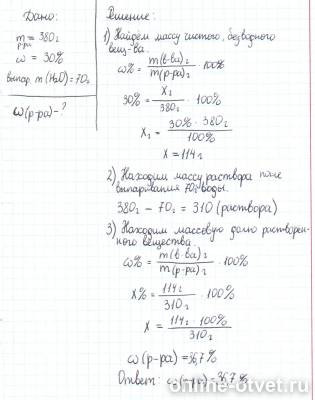 Дано:
m р-ра = 380г
ω = 30%
выпар. m(H₂O)=70г
ω(р-ра)-?
Решение:
1) Найдем массу чистого, безводного
вещ-ва.
ω% = m(в-ва)г / m(р-ра)г · 100%
30% = Xг / 380г · 100%
Xг = 30% · 380г / 100%
X = 114г
2) Находим массу раствора после
выпаривания 70г воды.
380г - 70г = 310 (раствора)
3) Находим массовую долю растворен-
ного вещества.
ω% = m(в-ва)г / m(р-ра)г · 100%
X% = 114г / 310г · 100%
X = 114г · 100% / 310г
ω(р-ра) = 36,7%
Ответ: ω(р-ра) = 36,7%
online-otvet.ru